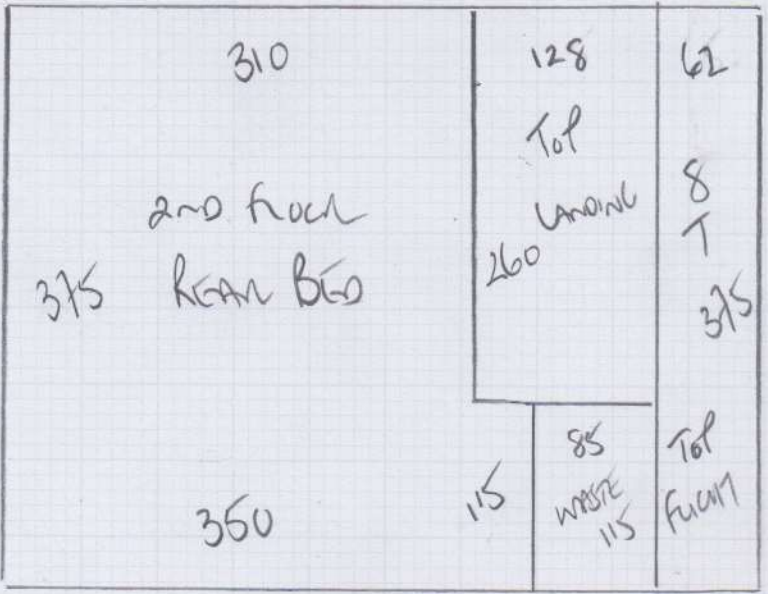 310
2ND FLOOR
REAR BED
375
350
128
TOP
LANDING
260
115
85
WASTE
115
62
8
T
375
TOP
FLIGHT